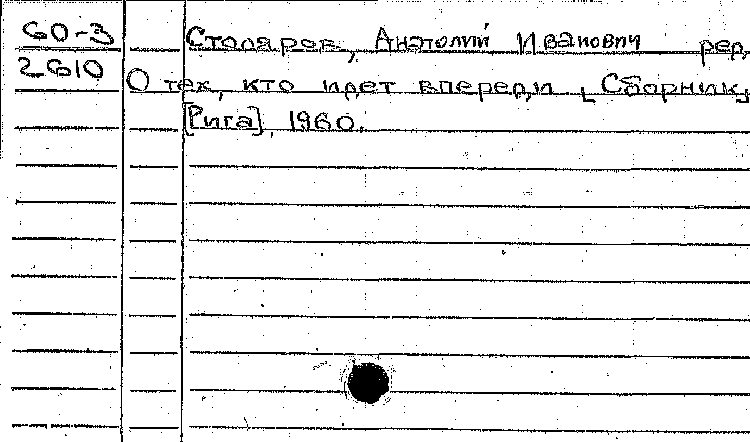 60-3 Столяров, Анатолий Иванович ред.
2610 О тех, кто идет впереди [Сборник]
[Рига], 1960.